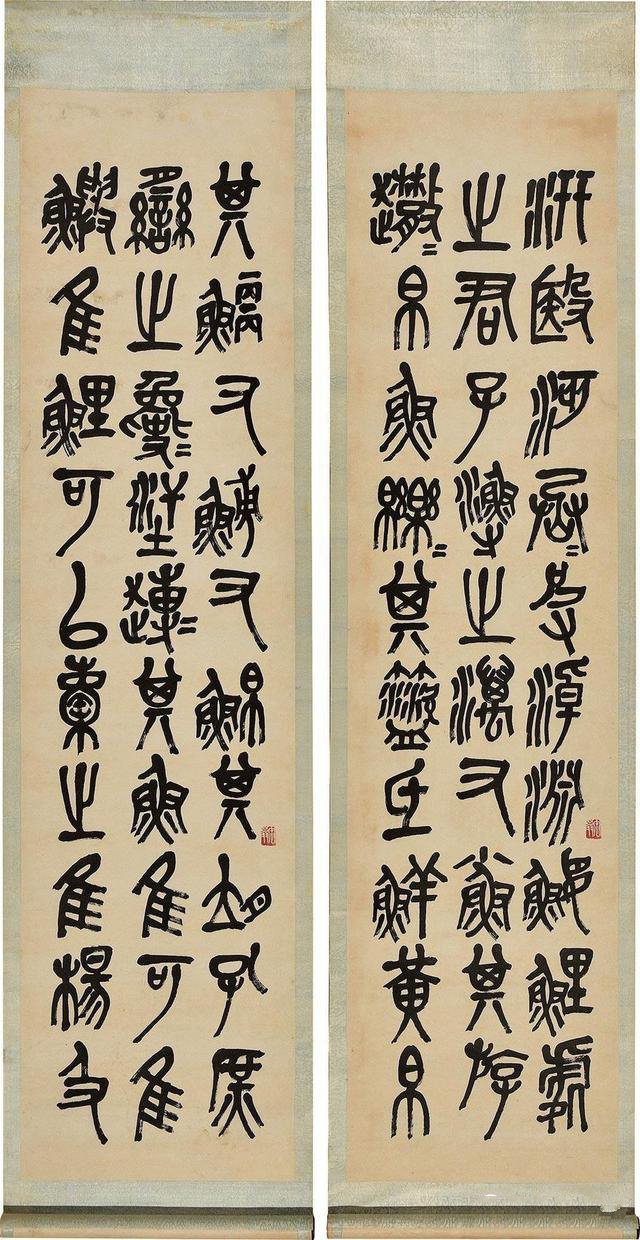 汧殹沔丞皮淖淵鰋鯉處
之君子漁之澫又小魚其斿
帛魚皪=其氐鮮黃帛
其鯿又鰟又鮊其孔庶
臠之夐=趩=其魚隹可隹
鱮隹鯉可㠯橐之隹楊及